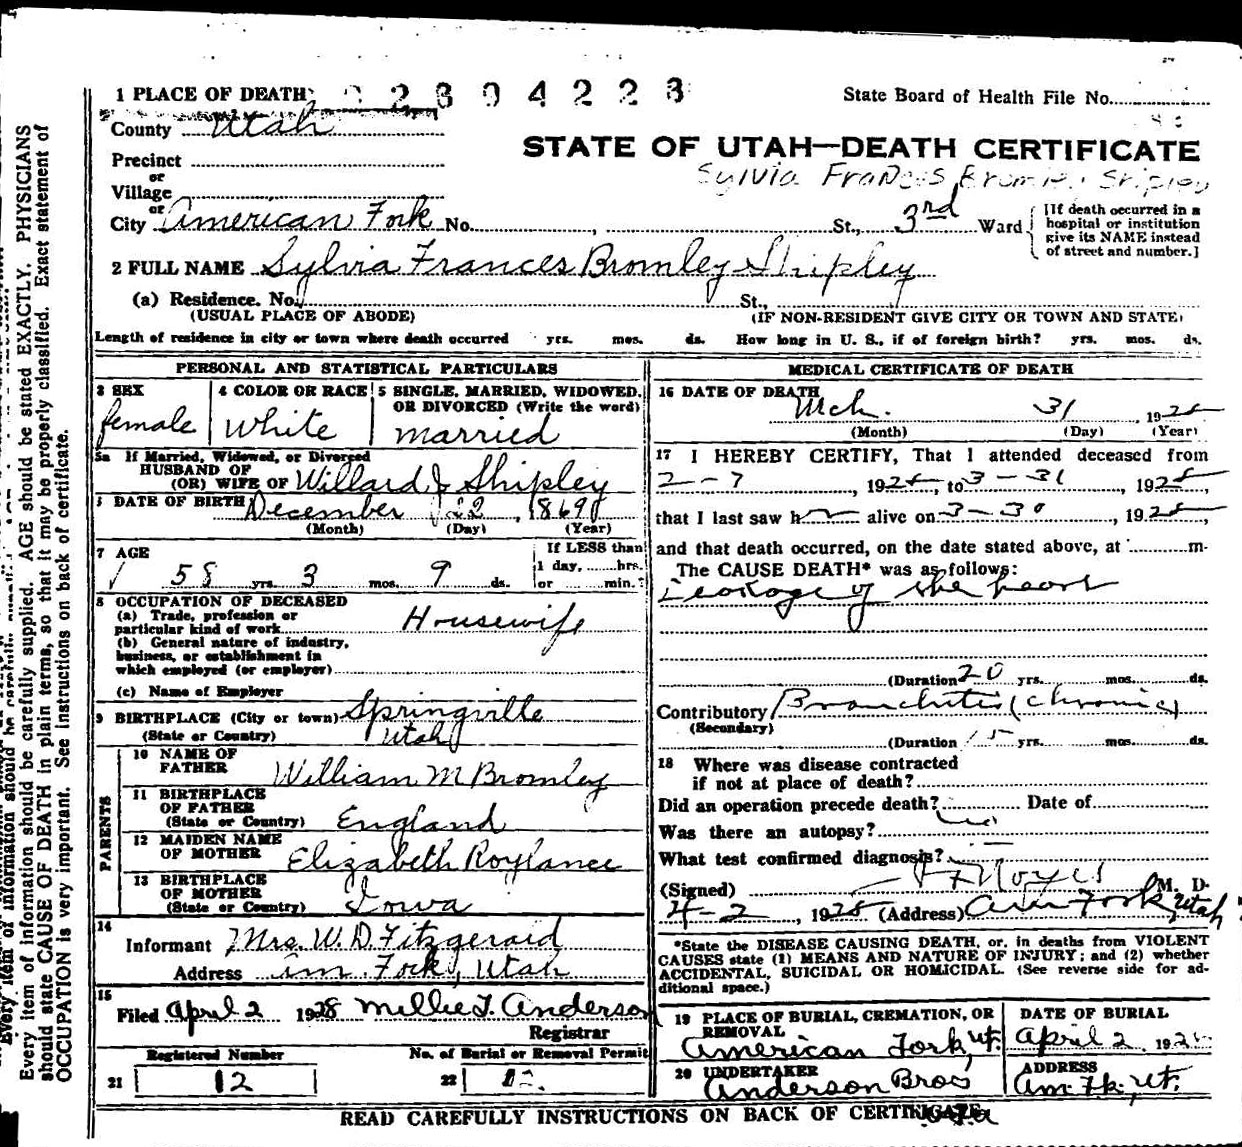 1 PLACE OF DEATH 2394223 State Board of Health File No.
County Utah
STATE OF UTAH—DEATH CERTIFICATE
Precinct
Sylvia Frances Bromley Shipley
or
Village
or
City American Fork No. , St., 3rd Ward
[If death occurred in a
hospital or institution
give its NAME instead
of street and number.]
2 FULL NAME Sylvia Frances Bromley Shipley
(a) Residence. No. St.,
(USUAL PLACE OF ABODE) (IF NON-RESIDENT GIVE CITY OR TOWN AND STATE)
Length of residence in city or town where death occurred yrs. mos. ds. How long in U. S., if of foreign birth? yrs. mos. ds.
PERSONAL AND STATISTICAL PARTICULARS
3 SEX
female
4 COLOR OR RACE
White
5 SINGLE, MARRIED, WIDOWED,
OR DIVORCED (Write the word)
married
5a If Married, Widowed, or Divorced
HUSBAND OF
(OR) WIFE OF Willard J Shipley
DATE OF BIRTH December 22, 1869
(Month) (Day) (Year)
7 AGE
58 yrs. 3 mos. 9 ds.
If LESS than
1 day, hrs.
or min.
8 OCCUPATION OF DECEASED
(a) Trade, profession or
particular kind of work Housewife
(b) General nature of industry,
business, or establishment in
which employed (or employer)
(c) Name of Employer
9 BIRTHPLACE (City or town) Springville
(State or Country) Utah
PARENTS
10 NAME OF
FATHER William M Bromley
11 BIRTHPLACE
OF FATHER
(State or Country) England
12 MAIDEN NAME
OF MOTHER Elizabeth Roylance
13 BIRTHPLACE
OF MOTHER
(State or Country) Iowa
14
Informant Mrs. W. D. Fitzgerald
Address Am Fork, Utah
15
Filed April 2 1928 Millie T. Anderson
Registrar
Registered Number No. of Burial or Removal Permit
21 12 22 12
MEDICAL CERTIFICATE OF DEATH
16 DATE OF DEATH
Mch. 31 1928
(Month) (Day) (Year)
17 I HEREBY CERTIFY, That I attended deceased from
2-7, 1928, to 3-31 1928,
that I last saw h alive on 3-30, 1928,
and that death occurred, on the date stated above, at m.
The CAUSE DEATH* was as follows:
Leakage of the heart
(Duration 20 yrs. mos. ds.
Contributory Bronchitis (Chronic)
(Secondary)
(Duration 15 yrs. mos. ds.
18 Where was disease contracted
if not at place of death?
Did an operation precede death? Date of
Was there an autopsy?
What test confirmed diagnosis?
(Signed) Noyes M. D.
4-2, 1928 (Address) Am Fork, Utah
*State the DISEASE CAUSING DEATH, or, in deaths from VIOLENT
CAUSES state (1) MEANS AND NATURE OF INJURY; and (2) whether
ACCIDENTAL, SUICIDAL OR HOMICIDAL. (See reverse side for ad-
ditional space.)
19 PLACE OF BURIAL, CREMATION, OR
REMOVAL
American Fork, Ut.
DATE OF BURIAL
April 2 1928
20 UNDERTAKER
Anderson Bros
ADDRESS
Am. Fk., Ut.
READ CAREFULLY INSTRUCTIONS ON BACK OF CERTIFICATE
Every item of information should be carefully supplied. AGE should be stated EXACTLY. PHYSICIANS
should state CAUSE OF DEATH in plain terms, so that it may be properly classified. Exact statement of
OCCUPATION is very important. See instructions on back of certificate.